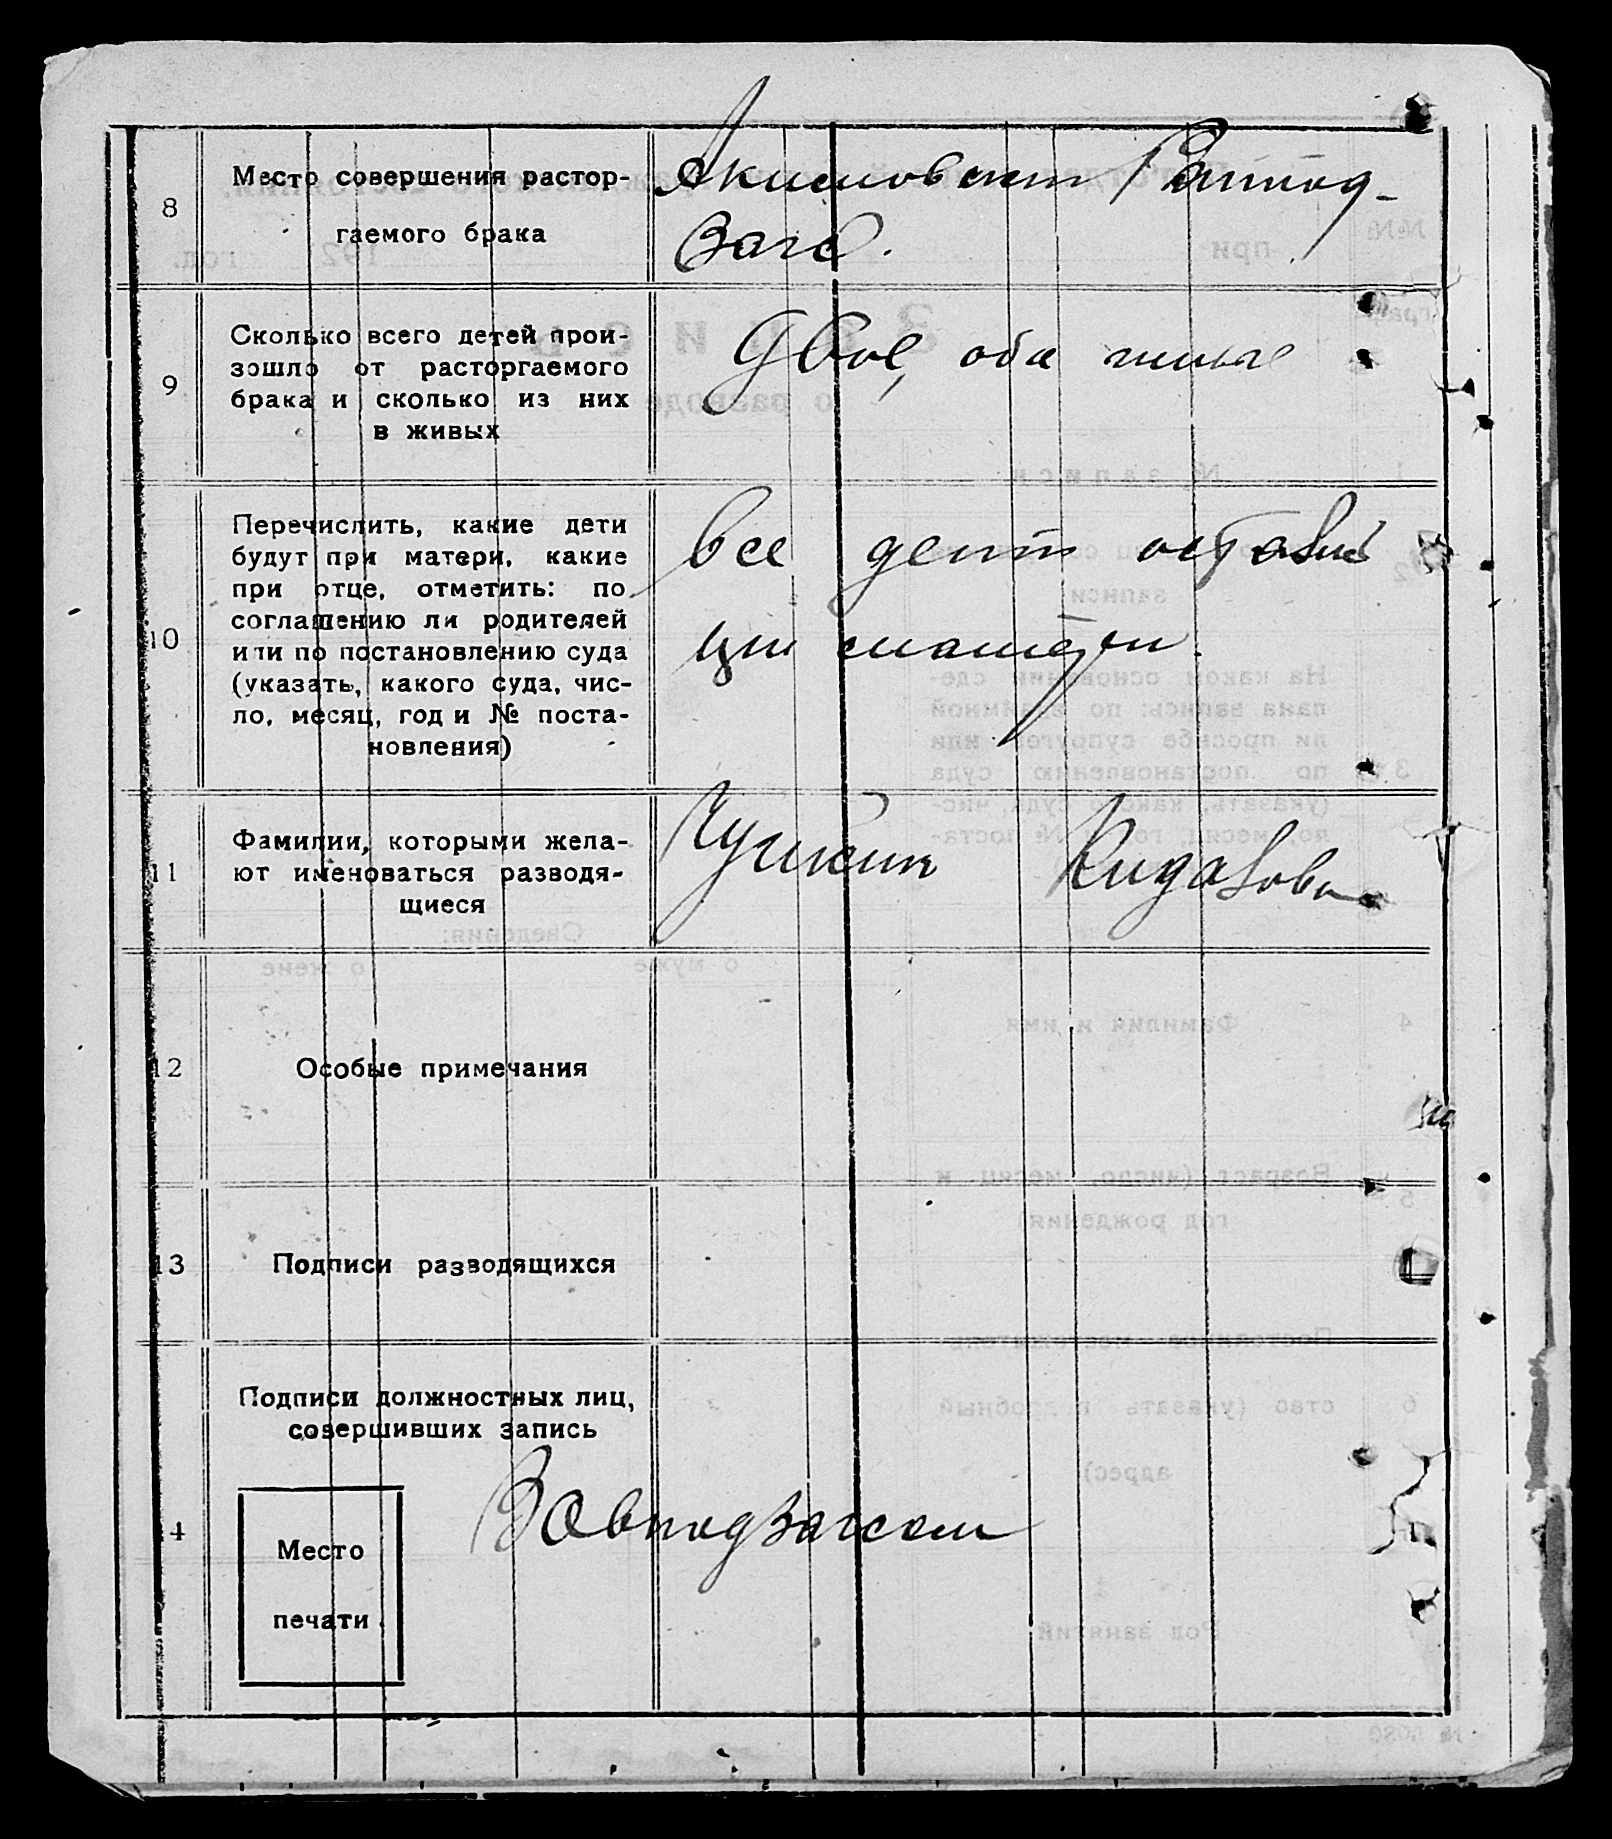 8
Место совершения растор-
гаемого брака
Акимовский Райпод-
загс.
9
Сколько всего детей прои-
зошло от расторгаемого
брака и сколько из них
в живых
Двое, оба живые
10
Перечислить, какие дети
будут при матери, какие
при отце, отметить: по
соглашению ли родителей
или по постановлению суда
(указать, какого суда, чис-
ло, месяц, год и № поста-
новления)
все дети
матери.
11
Фамилии, которыми жела-
ют именоваться разводя-
щиеся
12
Особые примечания
13
Подписи разводящихся
14
Подписи должностных лиц,
совершивших запись
Место
печати
Завподзагсом